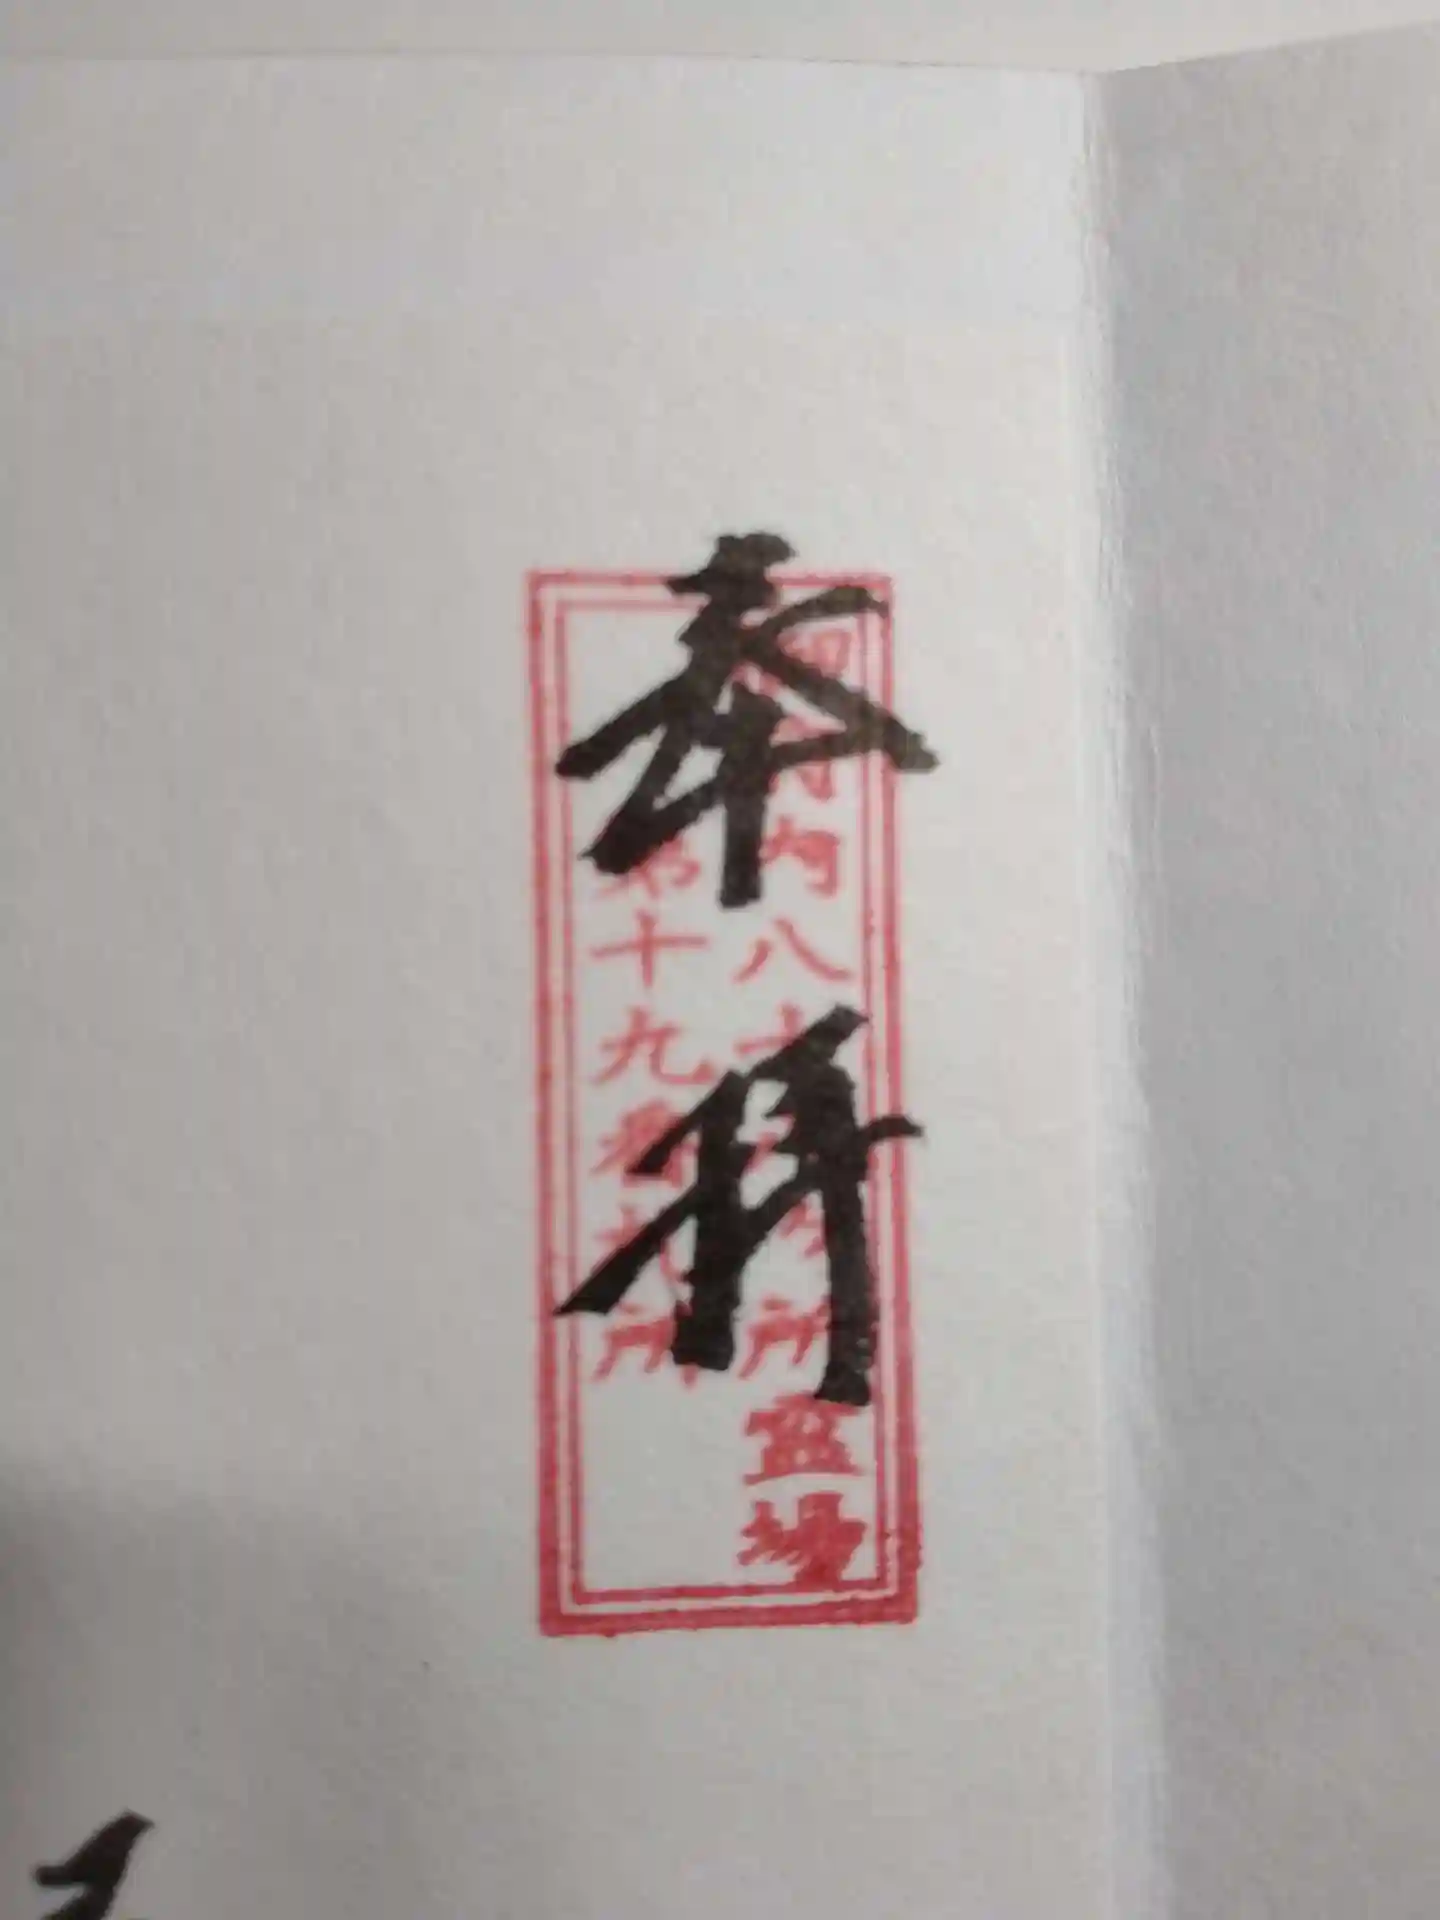 奉拝
御府内八十八ヶ所霊場
第十九番札所